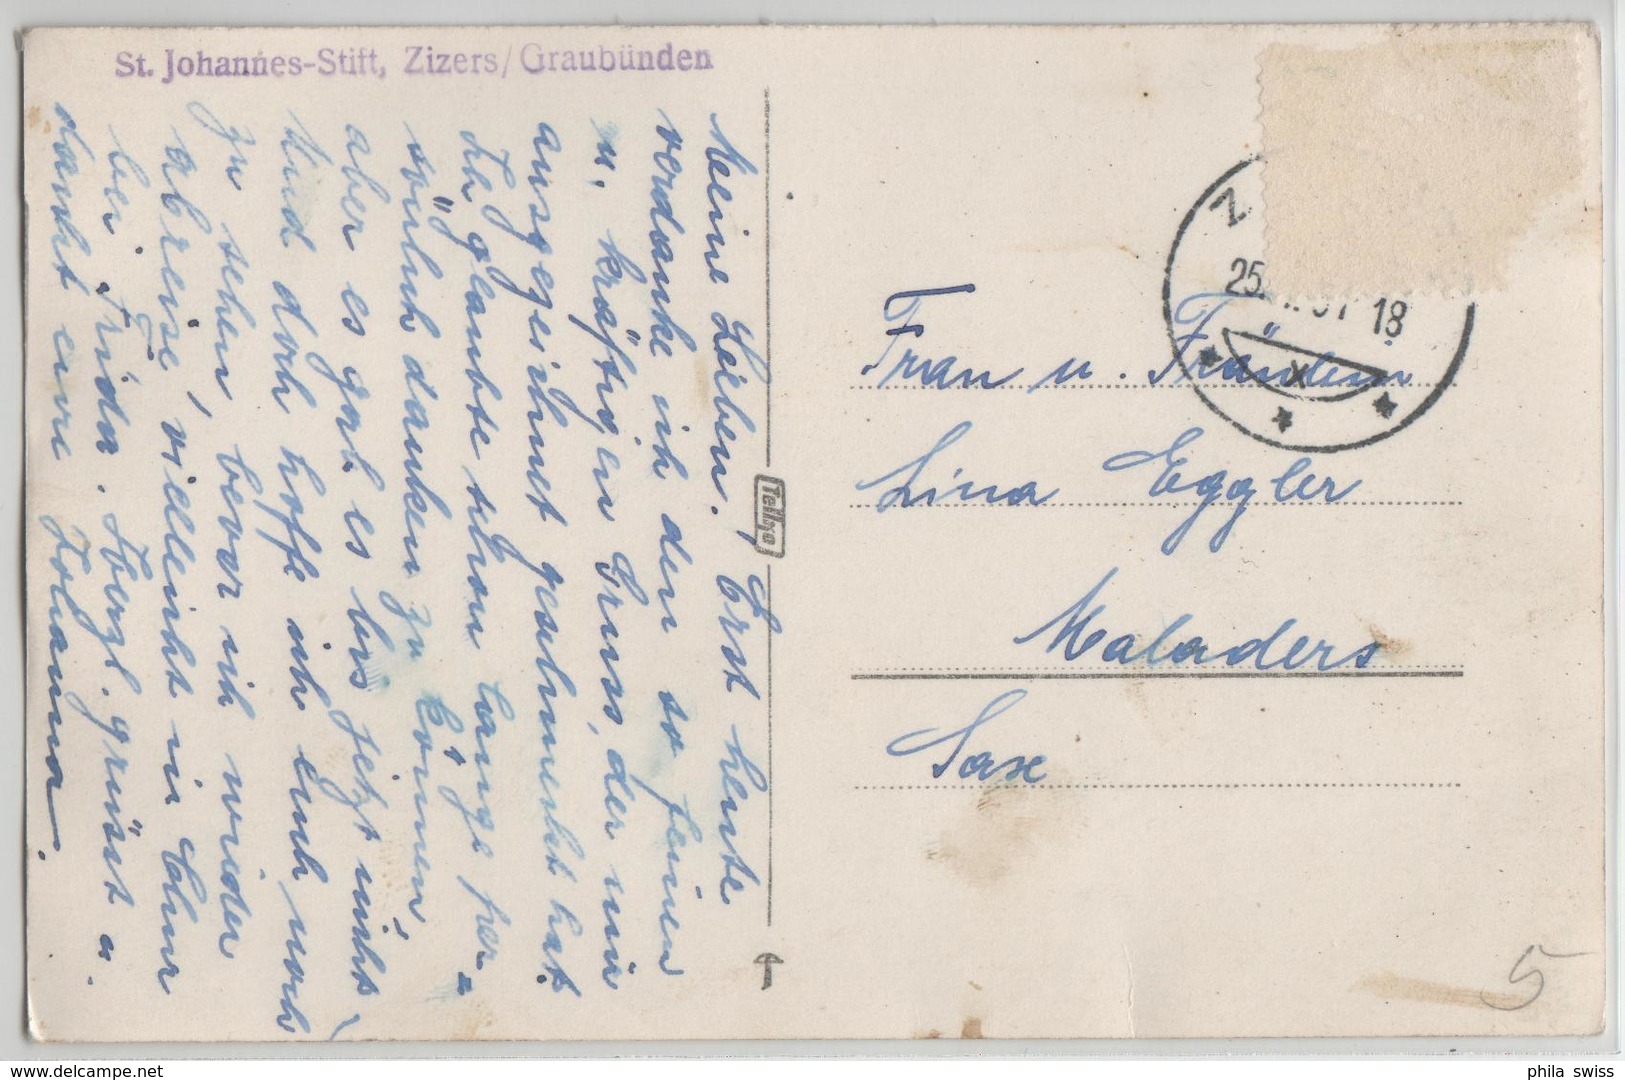 St. Johannes-Stift, Zizers/Graubünden
Meine Lieben. Erst heute
verdanke ich den so feinen
u. kräftigen Gruss, der mir
ausgezeichnet geschmeckt hat.
Ich glaubte schon lange per-
sönlich danken zu können,
aber es gab es bis jetzt nicht
Und doch hoffe ich Euch noch
zu sehen, bevor ich wieder
abreise, vielleicht in Chur
bei Frida. Herzl. grüsst u.
dankt eure Johanna.
Frau u. Fräulein
Lina Eggler
Maladers
Saxe
Z
25. 18
X
5
phila swiss